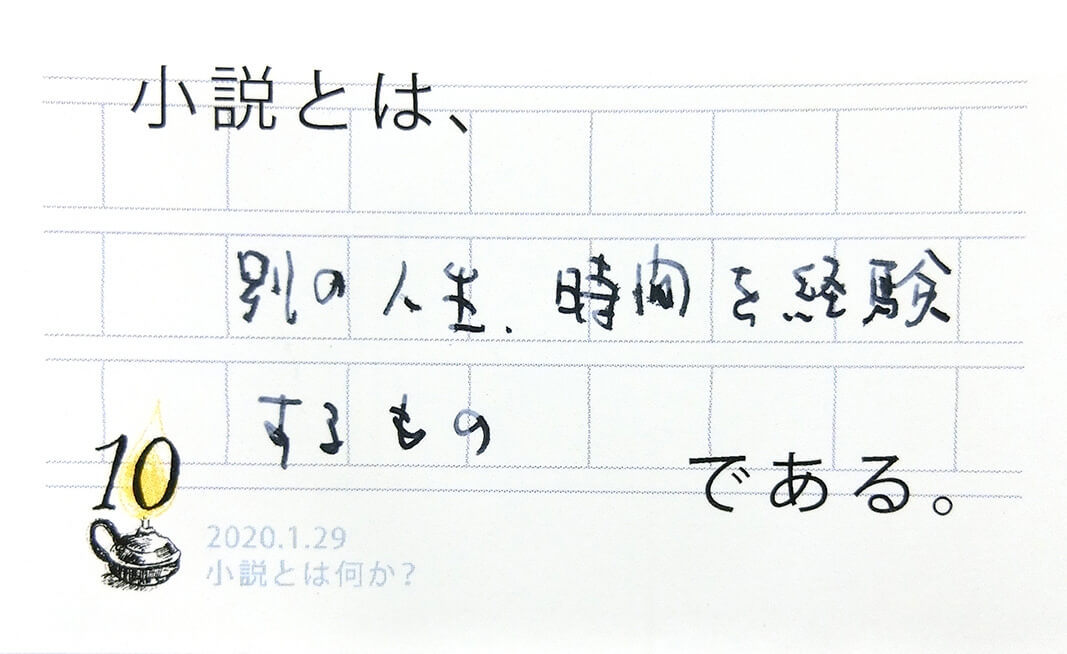 小説とは、
別の人生、時間を経験
するもの
である。
10
2020.1.29
小説とは何か?